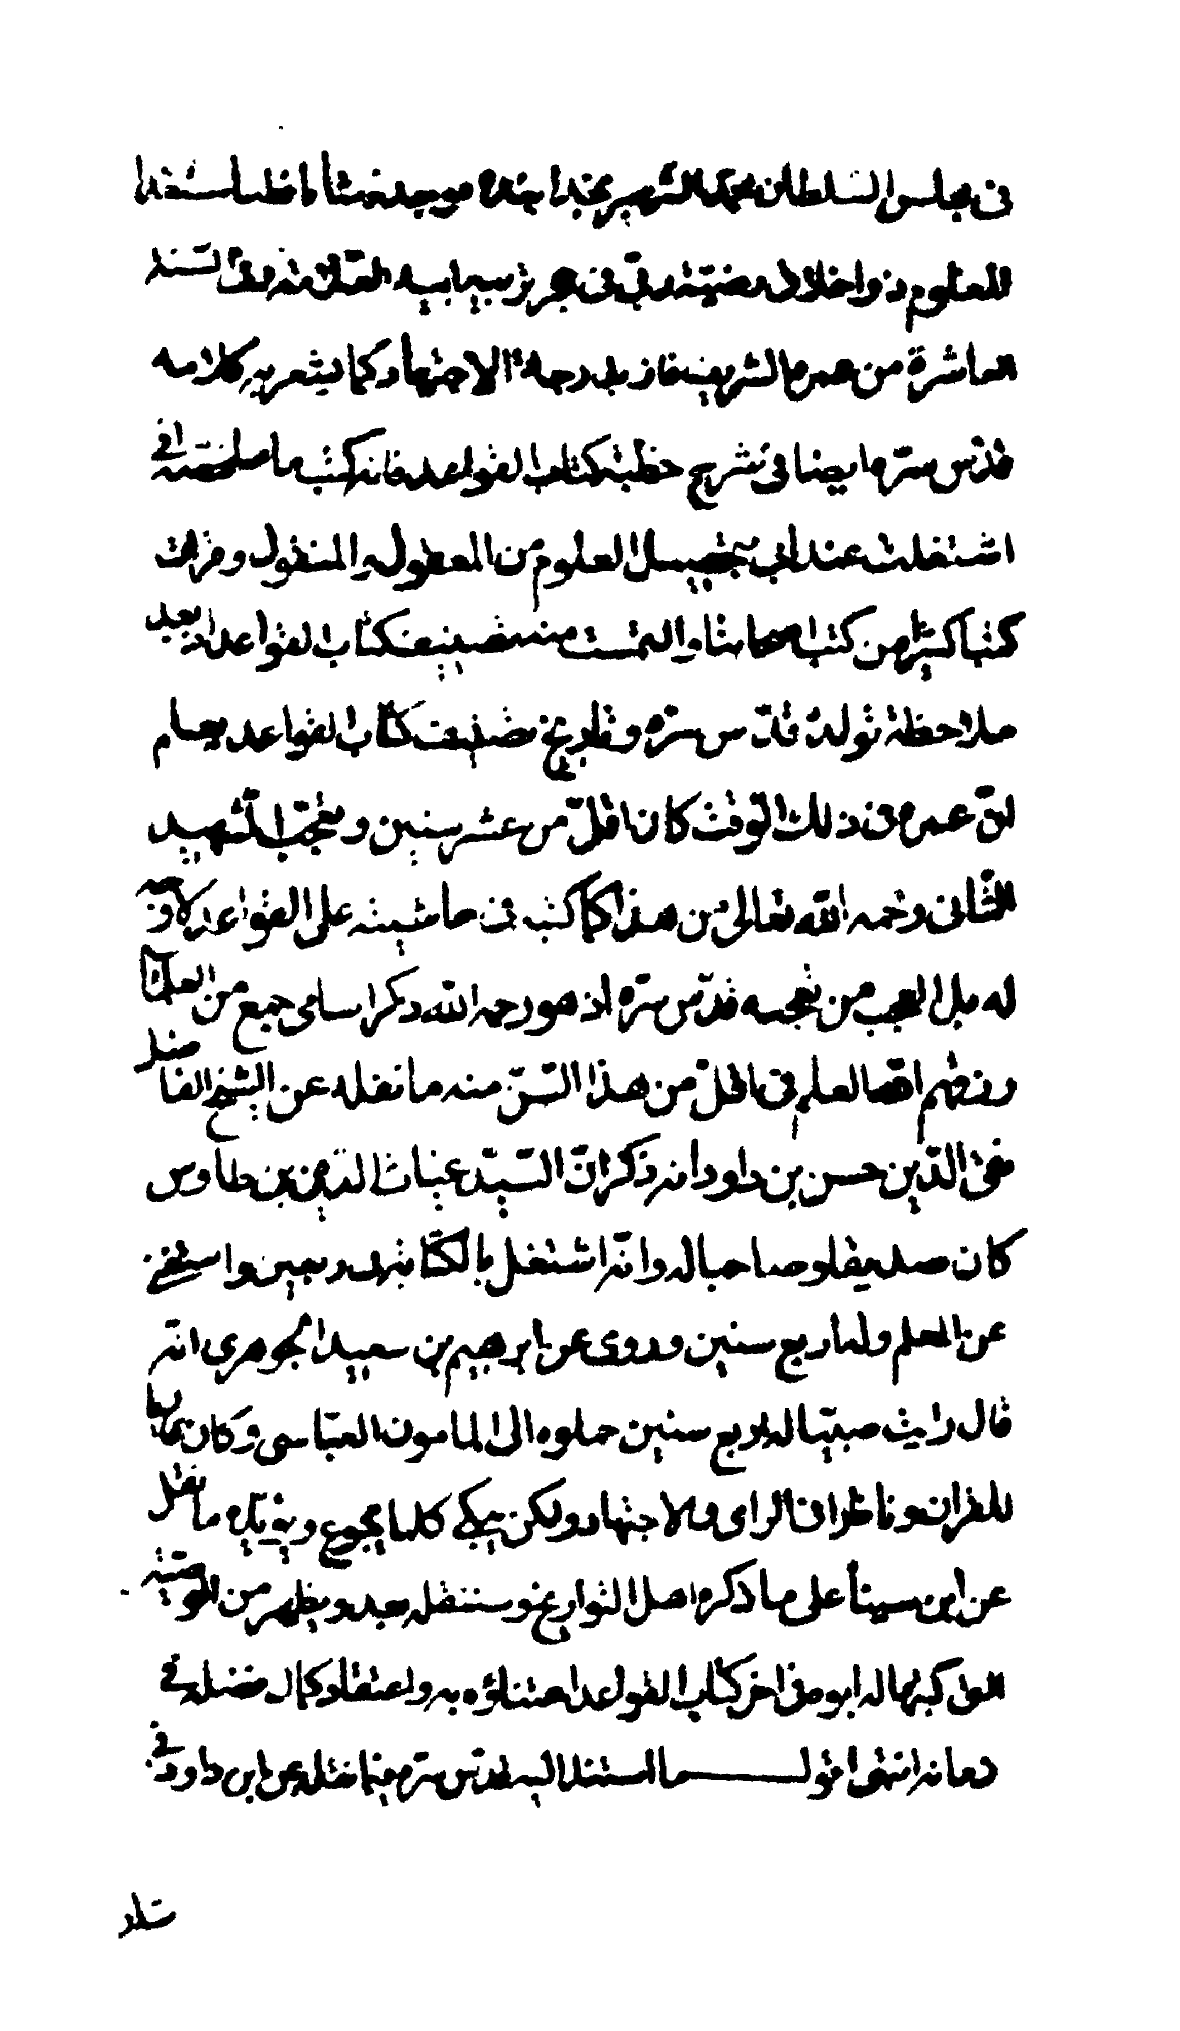 في مجلس السلطان محمد الشهير بخدابنده فوجده شابا فطنا مستعدا
للعلوم ذو اخلاق رضية ربي في حجر تربية ابيه العلامة في السنة
العاشرة من عمره الشريف فاز بدرجة الاجتهاد وكما يشعر به كلامه
قدّس سرّه ايضا في شرح خطبة كتاب القواعد فانه كتب ما ملخصه اني
اشتغلت عند ابي بتحصيل العلوم من المعقول والمنقول وقرأت
كتبا كثيرا من كتب اصحابنا والتمست منه تصنيف كتاب القواعد اذ بعد
ملاحظة تولده قدّس سرّه وتاريخ تصنيف كتاب القواعد يعلم
انّ عمره في ذلك الوقت كان اقلّ من عشر سنين وتعجّب الشهيد
الثّاني رحمه الله تعالى من هذا كما كتب في حاشيته على القواعد لا وجه
له بل العجب من تعجبه قدّس سرّه اذ هو رحمه الله ذكر اسامي جمع من العلماء
رزقهم الله العلم في اقلّ من هذا السّنّ منه ما نقله عن الشيخ الفاضل
تقي الدّين حسن بن داود انه ذكر انّ السّيّد غياث الدين بن طاوس
كان صديقا وصاحبا له وانّه اشتغل بالكتابة في اربعين يوما واستغنى
عن المعلم وله اربع سنين وروى عن ابرهيم بن سعيد الجوهري انّه
قال رايت صبيّا له اربع سنين حملوه الى المامون العباسي وكان قاريا
للقران وناظرا في الراي والاجتهاد ولكن يبكي كلما يجوع ويؤيّده ما نقل
عن ابن سينا على ما ذكره اهل التواريخ وسننقله بعد ويظهر من الوصيّة
التي كتبها له ابوه في اخر كتاب القواعد اعتناؤه به واعتقاد كمال فضله في
زمانه انتهى اقول ما استند اليه قدّس سرّه فيما نقله عن ابن داود في